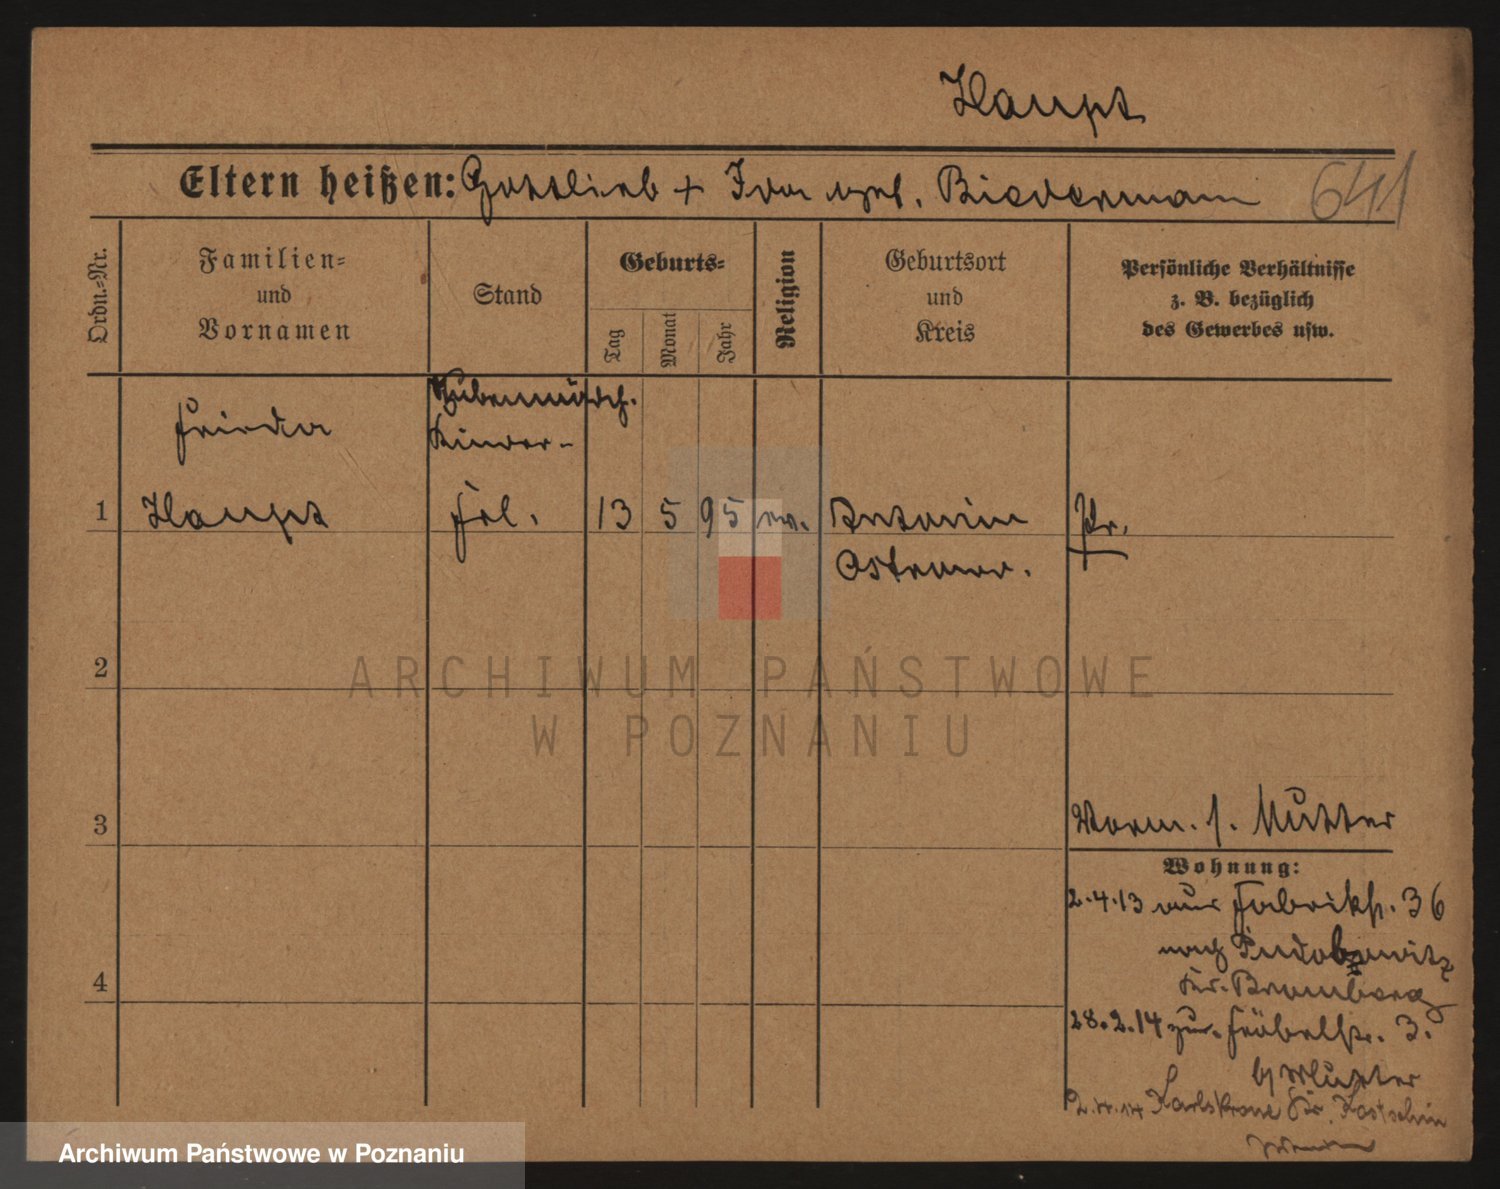 Haupt
Eltern heißen: Gottlieb + Ida geb. Biedermann
641
Ordn.-Nr.
Familien-
und
Vornamen
Stand
Geburts-
Tag
Monat
Jahr
Religion
Geburtsort
und
Kreis
Persönliche Verhältnisse
z. B. bezüglich
des Gewerbes usw.
Frieda
Stubenmädch.
Kinder-
1
Haupt
frl.
13
5
95
ev.
Antonin
Pr.
Ostrowo.
2
3
Worm. s. Mutter
Wohnung:
2.4.13 aus Fabrikstr. 36
nach
4
Kr. Bromberg
28.2.14 zur. Fröbelstr. 3.
b/ Mutter
2.4.14 Karlskrone Kr. Kostschin
ARCHIWUM PAŃSTWOWE
W POZNANIU
Archiwum Państwowe w Poznaniu